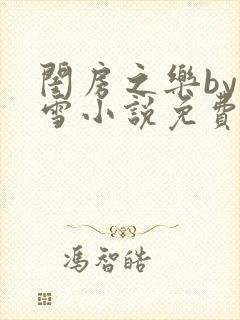 閨房之樂by
雪小說免費
馮智皓